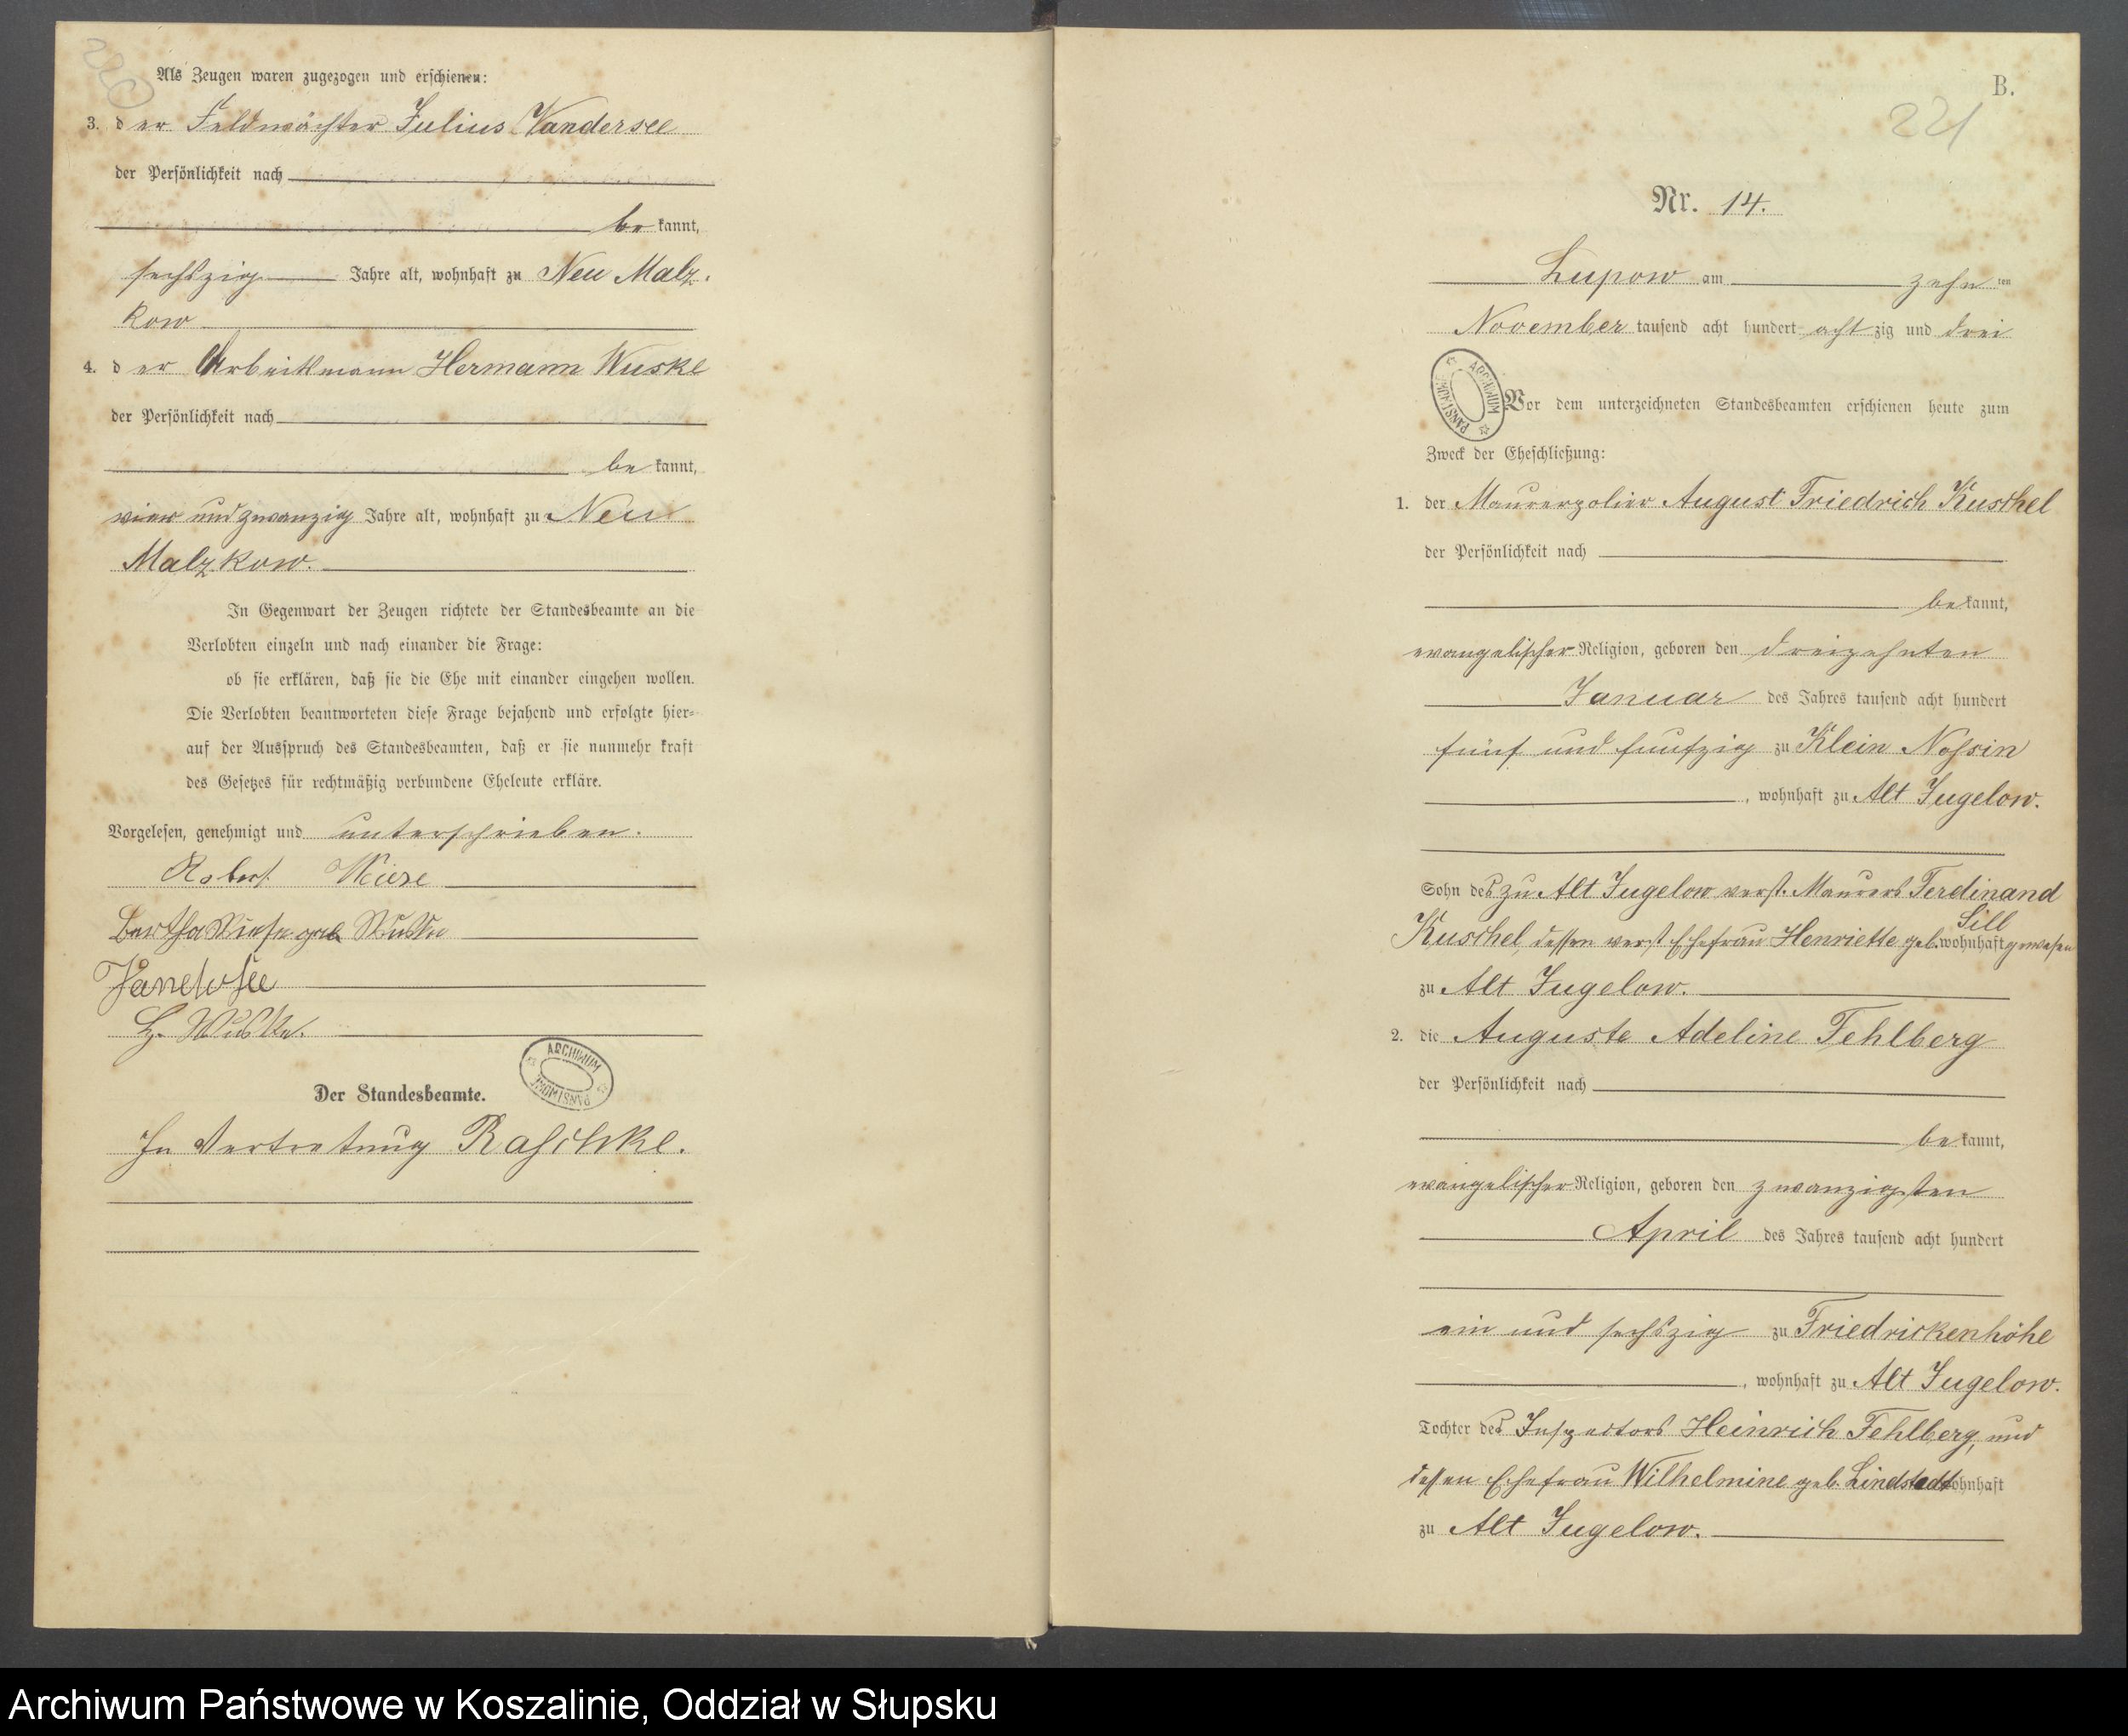 220
Als Zeugen waren zugezogen und erschienen:
3. der Feldwächter Julius Vandersee
der Persönlichkeit nach
bekannt,
sechszig Jahre alt, wohnhaft zu Neu Malz-
kow
4. der Arbeitsmann Hermann Wuske
der Persönlichkeit nach
bekannt,
vier und zwanzig Jahre alt, wohnhaft zu Neu
Malzkow.
In Gegenwart der Zeugen richtete der Standesbeamte an die
Verlobten einzeln und nach einander die Frage:
ob sie erklären, daß sie die Ehe mit einander eingehen wollen.
Die Verlobten beantworteten diese Frage bejahend und erfolgte hier-
auf der Ausspruch des Standesbeamten, daß er sie nunmehr kraft
des Gesetzes für rechtmäßig verbundene Eheleute erkläre.
Vorgelesen, genehmigt und unterschrieben.
Robert
Bertha geb. Wuske
H. Wuske.
ARCHIWUM PAŃSTWOWE
Der Standesbeamte.
In Vertretung Raschke.
B.
221
Nr. 14.
Lupow am zehnten
November tausend acht hundert achtzig und drei
ARCHIWUM PAŃSTWOWE
Vor dem unterzeichneten Standesbeamten erschienen heute zum
Zweck der Eheschließung:
1. der Maurerpolier August Friedrich Kuschel
der Persönlichkeit nach
bekannt,
evangelischer Religion, geboren den dreizehnten
Januar des Jahres tausend acht hundert
fünf und funfzig zu Klein Nossin
, wohnhaft zu Alt Jugelow.
Sohn des zu Alt Jugelow verst. Maurers Ferdinand
Kuschel, dessen verst. Ehefrau Henriette geb. Sill wohnhaft gewesen
zu Alt Jugelow.
2. die Auguste Adeline Fehlberg
der Persönlichkeit nach
bekannt,
evangelischer Religion, geboren den zwanzigsten
April des Jahres tausend acht hundert
ein und sechszig zu Friedrickenhöhe
, wohnhaft zu Alt Jugelow.
Tochter des Inspectors Heinrich Fehlberg, und
dessen Ehefrau Wilhelmine geb. Lindstedt wohnhaft
zu Alt Jugelow.
Archiwum Państwowe w Koszalinie, Oddział w Słupsku